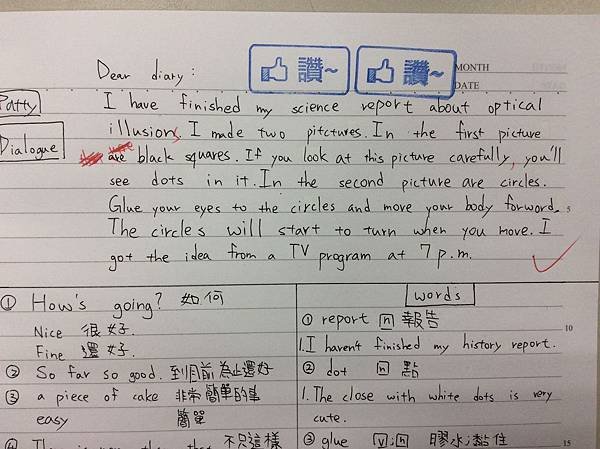 讚~ 讚~
MONTH
DATE
Dear diary :
Patty
Dialogue
I have finished my science report about optical
illusion, I made two pitctures. In the first picture
are black squares. If you look at this picture carefully, you'll
see dots in it. In the second picture are circles.
Glue your eyes to the circles and move your body forword. 5
The circles will start to turn when you move. I
got the idea from a TV program at 7 p.m.
① How's going? 如何
Nice 很好.
Fine 還好.
② So far so good. 到目前為止還好
③ a piece of cake 非常簡單的事
easy 簡單
不只這樣
words
① report n 報告 10
1. I haven't finished my history report.
② dot n 點
1. The close with white dots is very
cute.
③ glue v;n 膠水;黏住 15